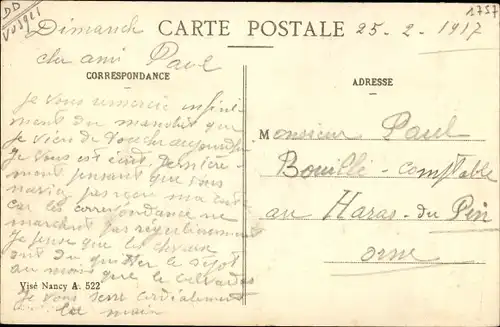 DD
VOSGES
1757
Dimanche
CARTE POSTALE
25-2-1917
cher ami Paul
CORRESPONDANCE
ADRESSE
Je vous remercie infini
ment du mandat que
je viens de toucher aujourd'hui
Je vous ai écrit dernière-
ment pensant que vous
pas reçu ma carte
car les correspondance ne
marchent pas regulièrement
Je pense que les chevaux
ont du quitter le dépôt
au moins que le calvados
Je vous serre cordialement
la main
Monsieur Paul
Bouillé - comptable
au Haras - du Pin
orne
Visé Nancy A. 522